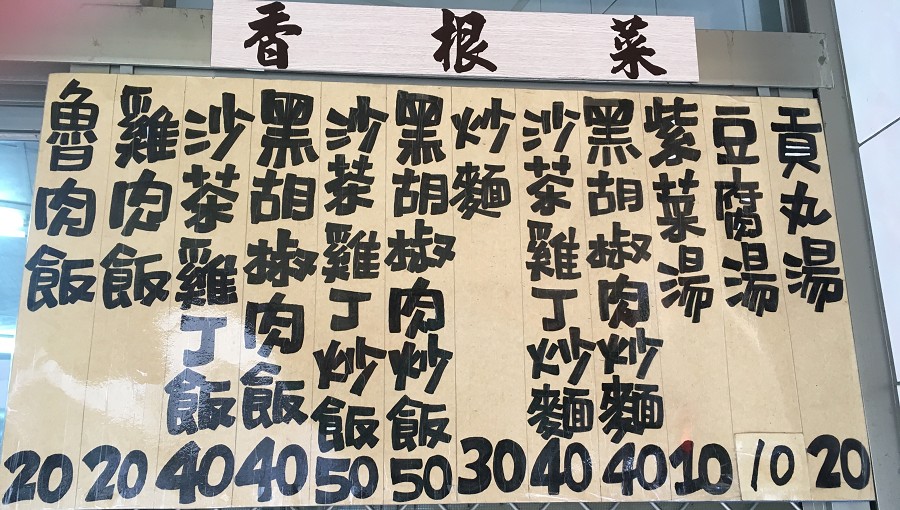 菜根香
魯肉飯 20
雞肉飯 20
沙茶雞丁飯 40
黑胡椒肉飯 40
沙茶雞丁炒飯 50
黑胡椒肉炒飯 50
炒麵 30
沙茶雞丁炒麵 40
黑胡椒肉炒麵 40
紫菜湯 10
豆腐湯 10
貢丸湯 20